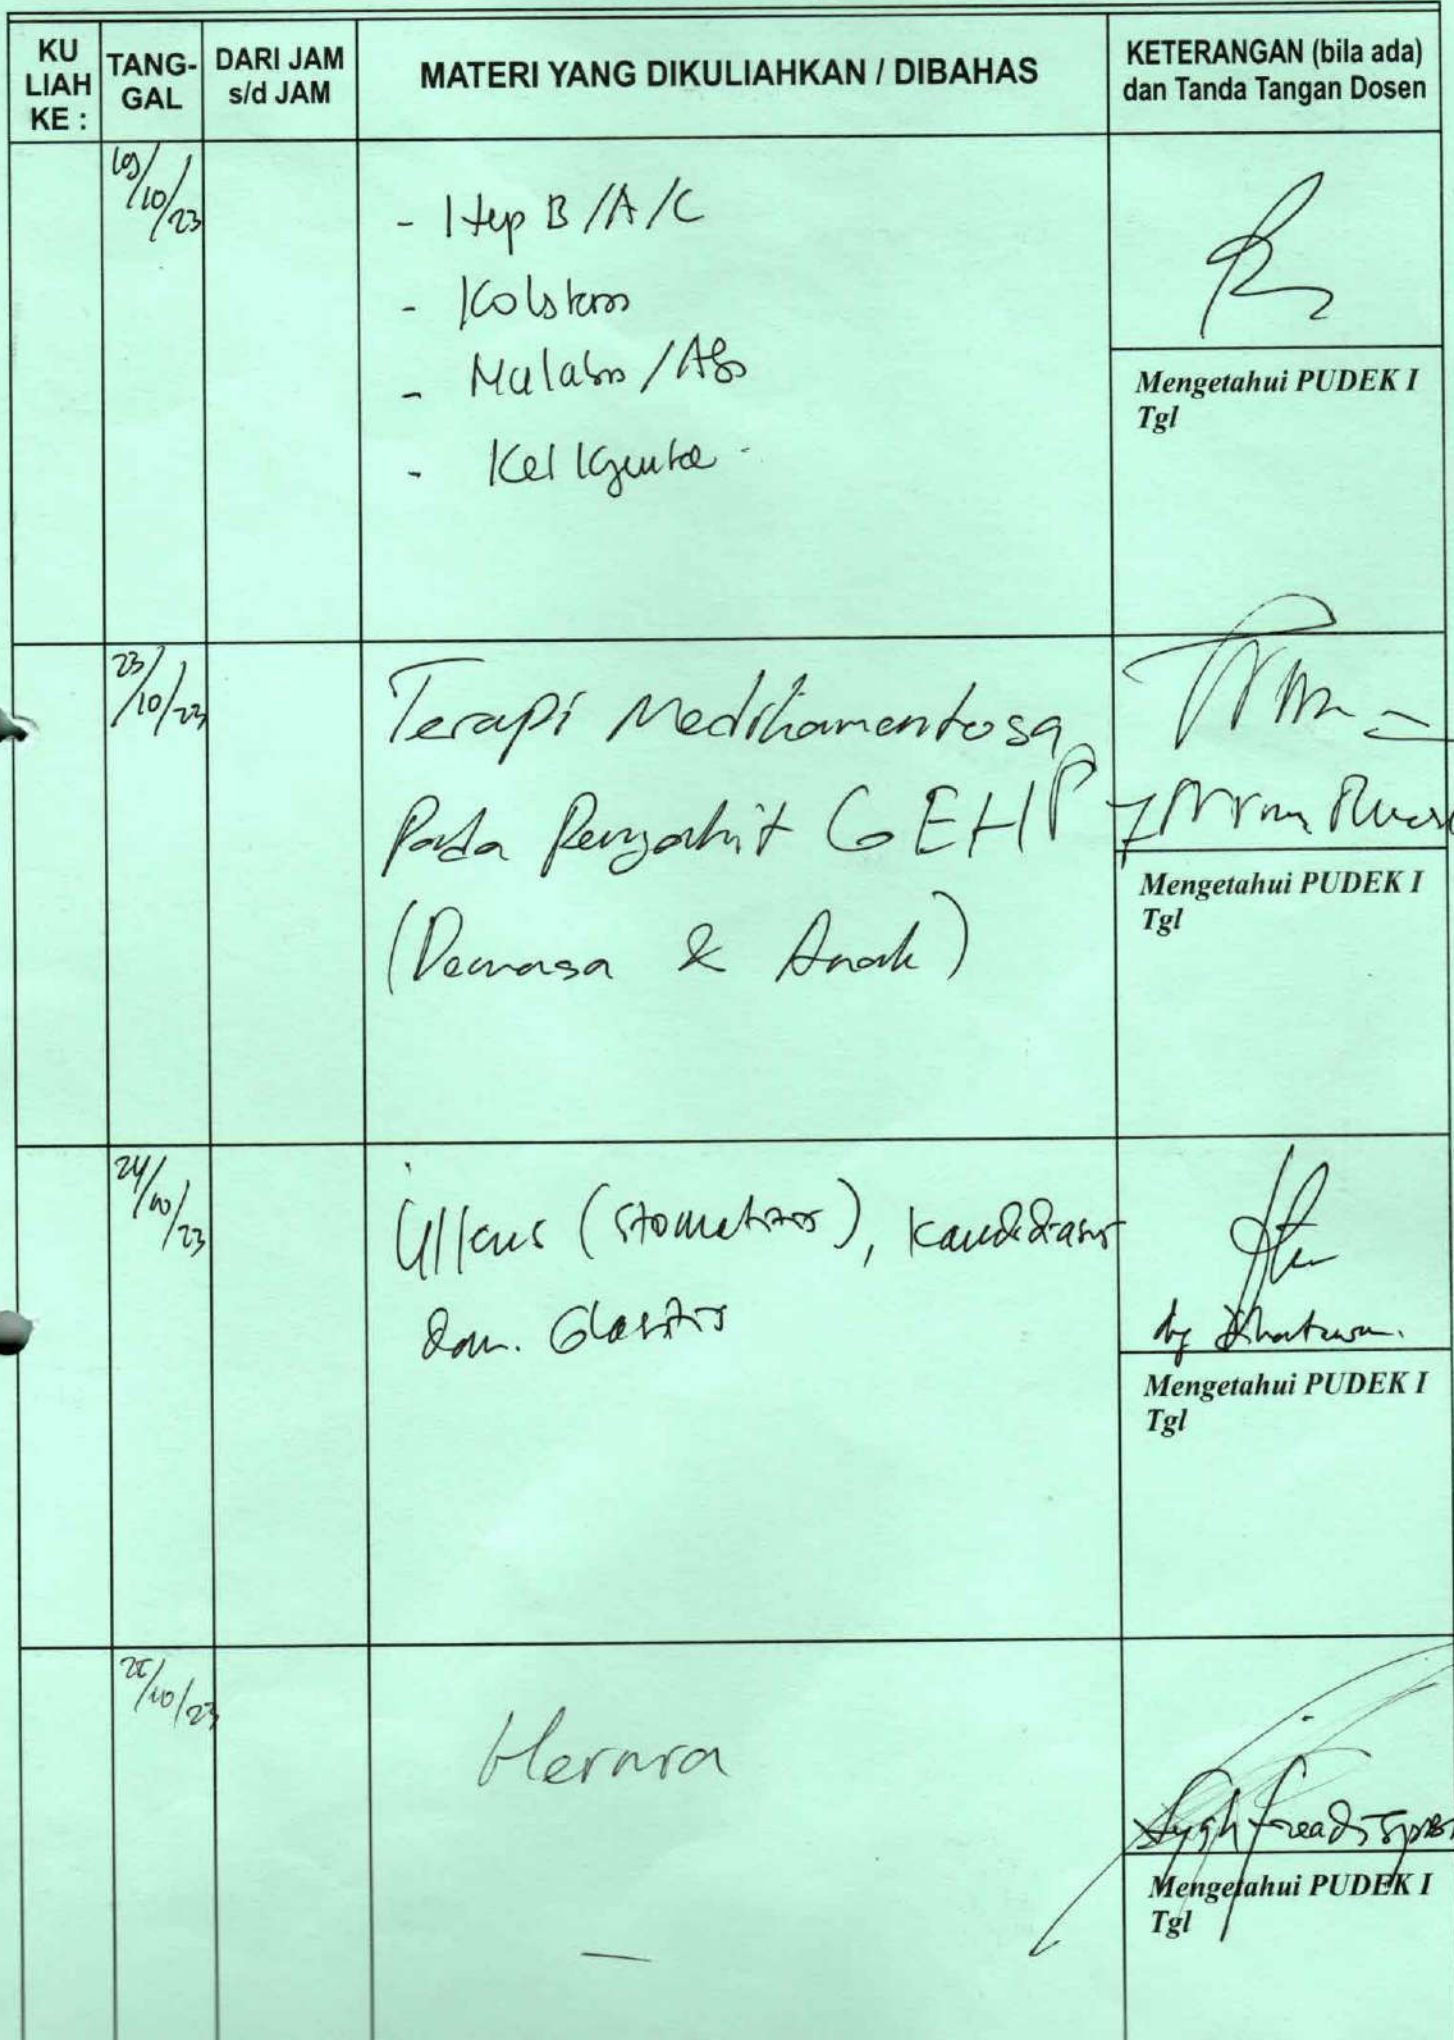 KU LIAH KE :
TANG-GAL
DARI JAM s/d JAM
MATERI YANG DIKULIAHKAN / DIBAHAS
KETERANGAN (bila ada) dan Tanda Tangan Dosen
/10/23
- Hep B/A/C
- Kolstass
- Malabs /
- Kel
Mengetahui PUDEK I
Tgl
23/10/23
Terapi Medikamentosa
Pada Penyakit GEHP
(Dewasa & Anak)
Mengetahui PUDEK I
Tgl
24/10/23
Ulkus (Stomatitis), Kandidiasis
dan. Glositis
Mengetahui PUDEK I
Tgl
25/10/23
Hernia
Mengetahui PUDEK I
Tgl